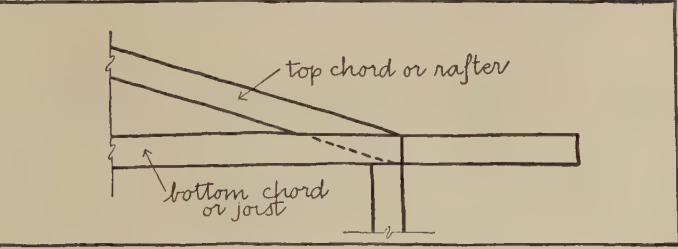 top chord or rafter
bottom chord
or joist